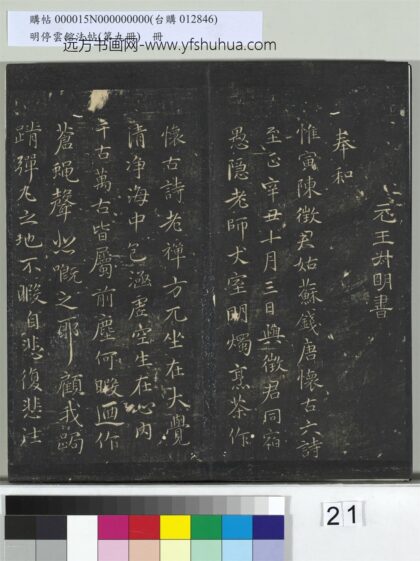 購帖 000015N000000000(台購 012846)
明停雲館法帖(第九冊) 冊
远方书画网-www.yfshuhua.com
元王叔明書
奉和
惟寅陳徵君姑蘇錢唐懷古六詩
至正辛丑十月三日與徵君同宿
愚隱老師大室明燭烹茶作
懷古詩老禪方兀坐在大覺
清净海中包涵虛空生在心內
千古萬古皆屬前塵何暇迺作
蒼蠅聲悲慨之耶顧我跼
蹐彈丸之地不暇自悲復悲往
21